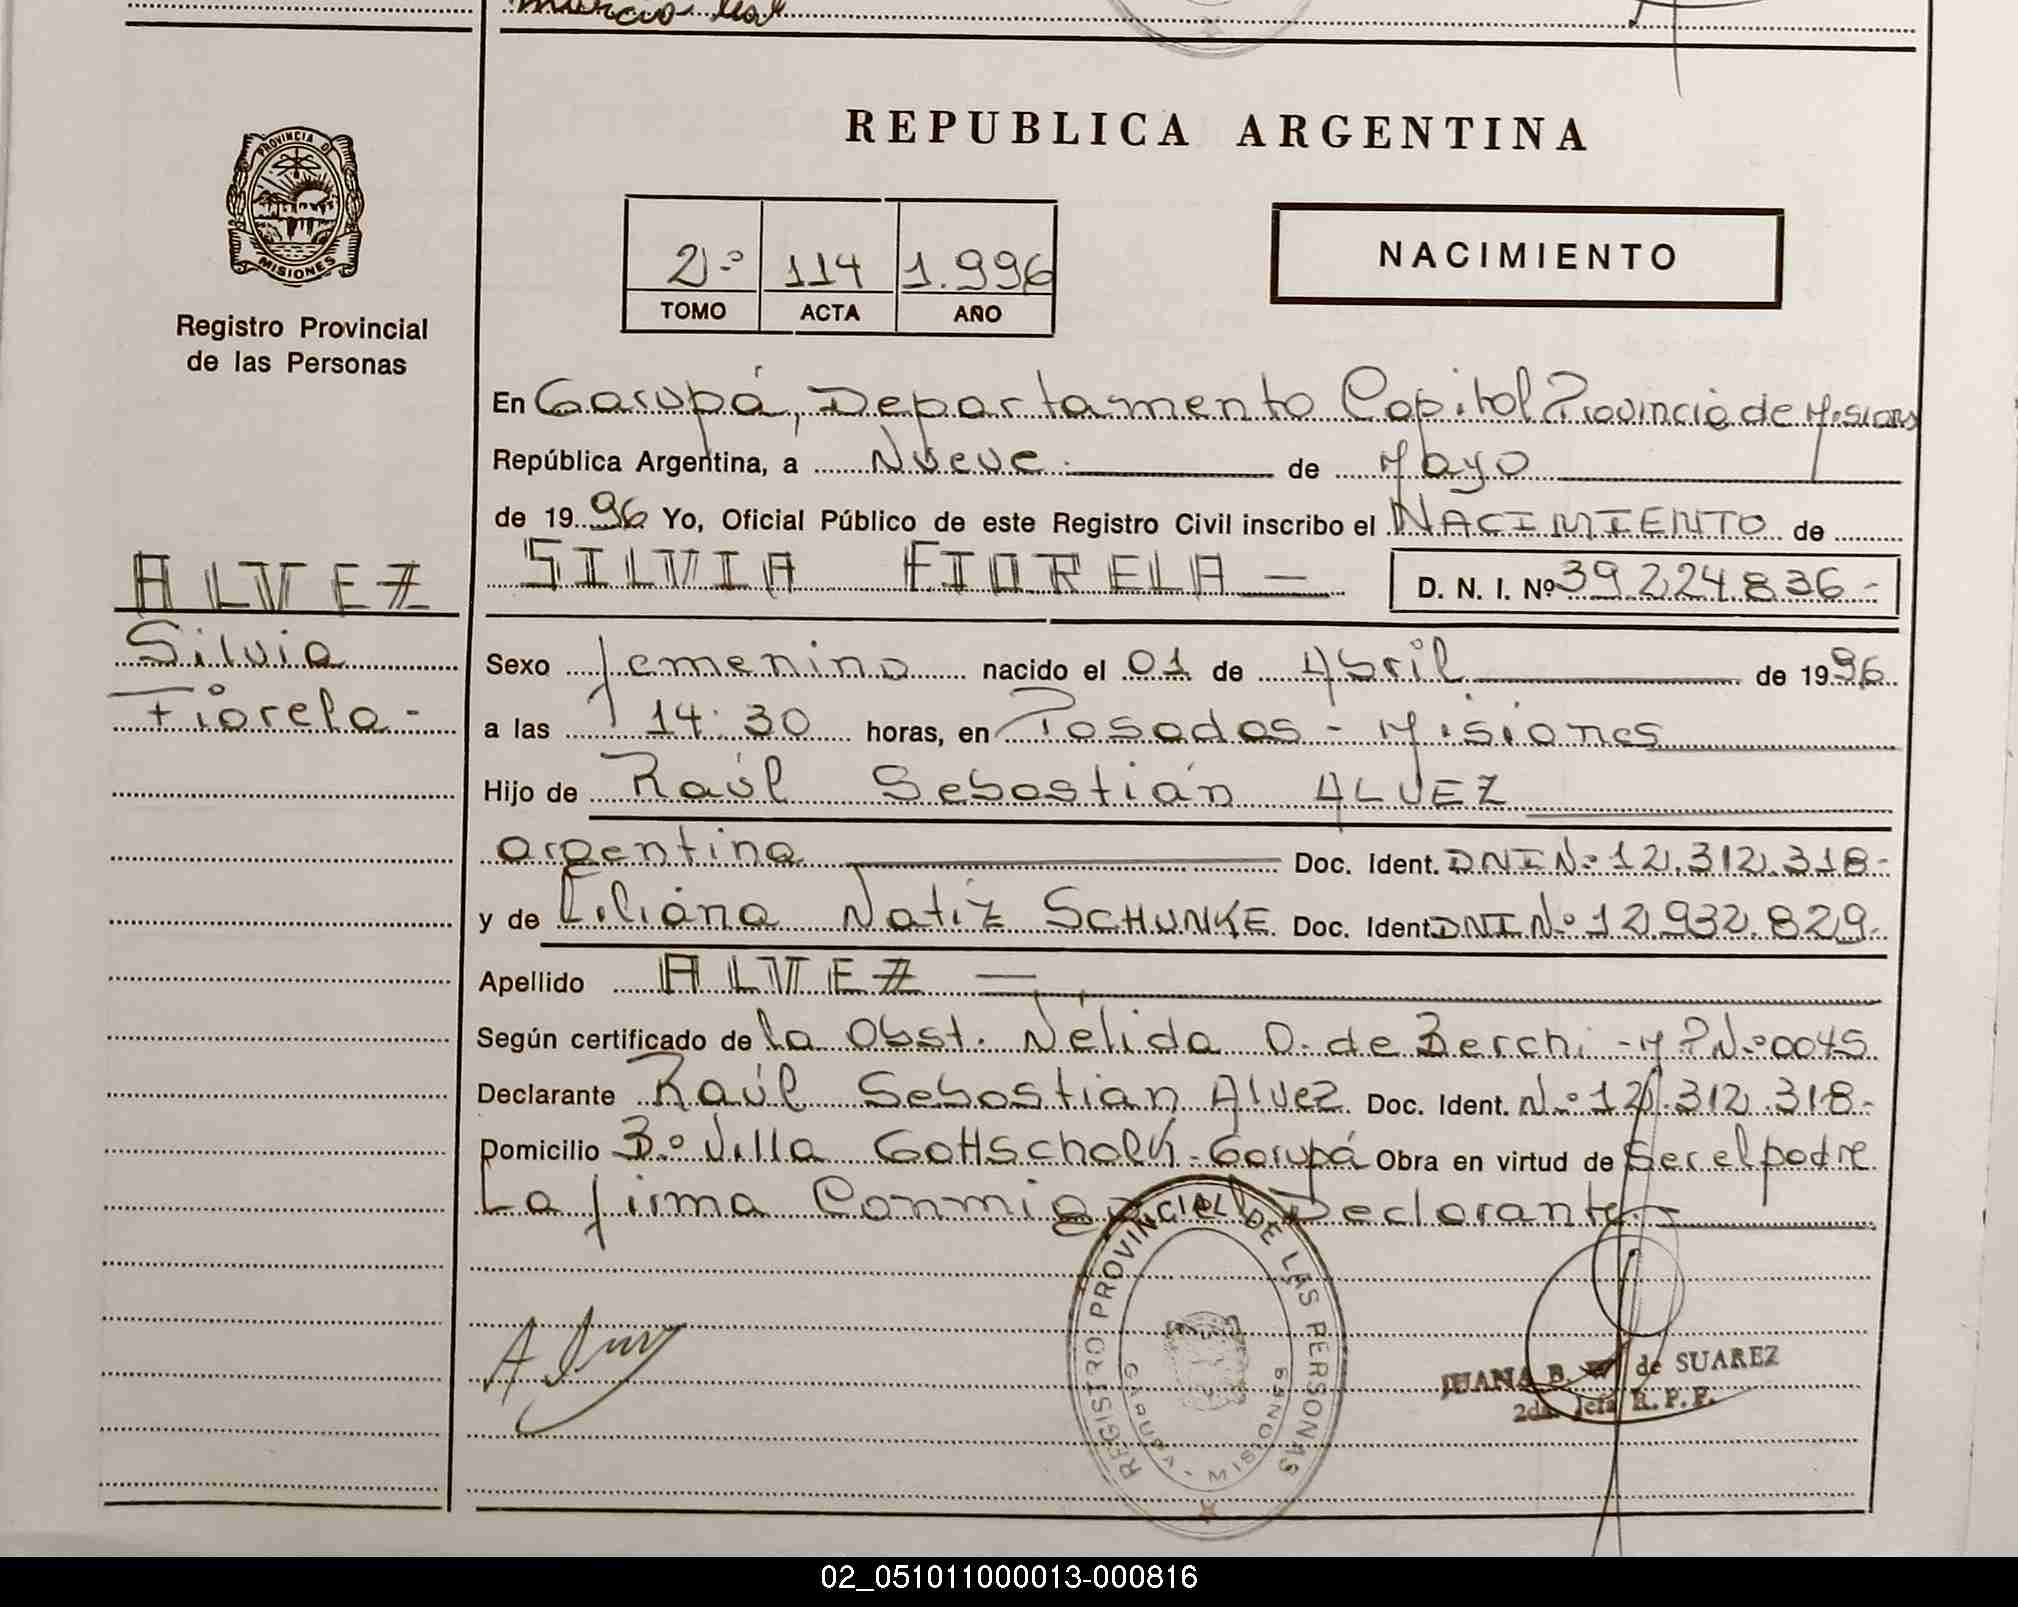 REPUBLICA ARGENTINA
PROVINCIA DE
MISIONES
Registro Provincial
de las Personas
2º 114 1.996
TOMO ACTA AÑO
NACIMIENTO
En Garupá, Departamento Capital Provincia de Misiones
República Argentina, a Nueve de Mayo
de 1996 Yo, Oficial Público de este Registro Civil inscribo el NACIMIENTO de
ALVEZ
Silvia
Fiorela-
SILVIA FIORELA — D. N. I. Nº 39.224.836-
Sexo femenino nacido el 01 de Abril de 1996
a las 14:30 horas, en Posadas - Misiones
Hijo de Raúl Sebastián ALVEZ
argentina Doc. Ident. DNI Nº 12.312.318-
y de Liliana Natiz SCHUNKE Doc. Ident. DNI Nº 12.932.829-
Apellido ALVEZ —
Según certificado de la Obst. Nélida O. de Berchi - M.P.Nº 0045
Declarante Raúl Sebastián Alvez Doc. Ident. Nº 12.312.318-
Domicilio Bº Villa Gottschalk - Garupá Obra en virtud de Ser el padre
La firma Conmigo el Declarante-
REGISTRO PROVINCIAL DE LAS PERSONAS
GARUPA - MISIONES
JUANA B. de SUAREZ
2da. Jefa R. P. P.
02_051011000013-000816